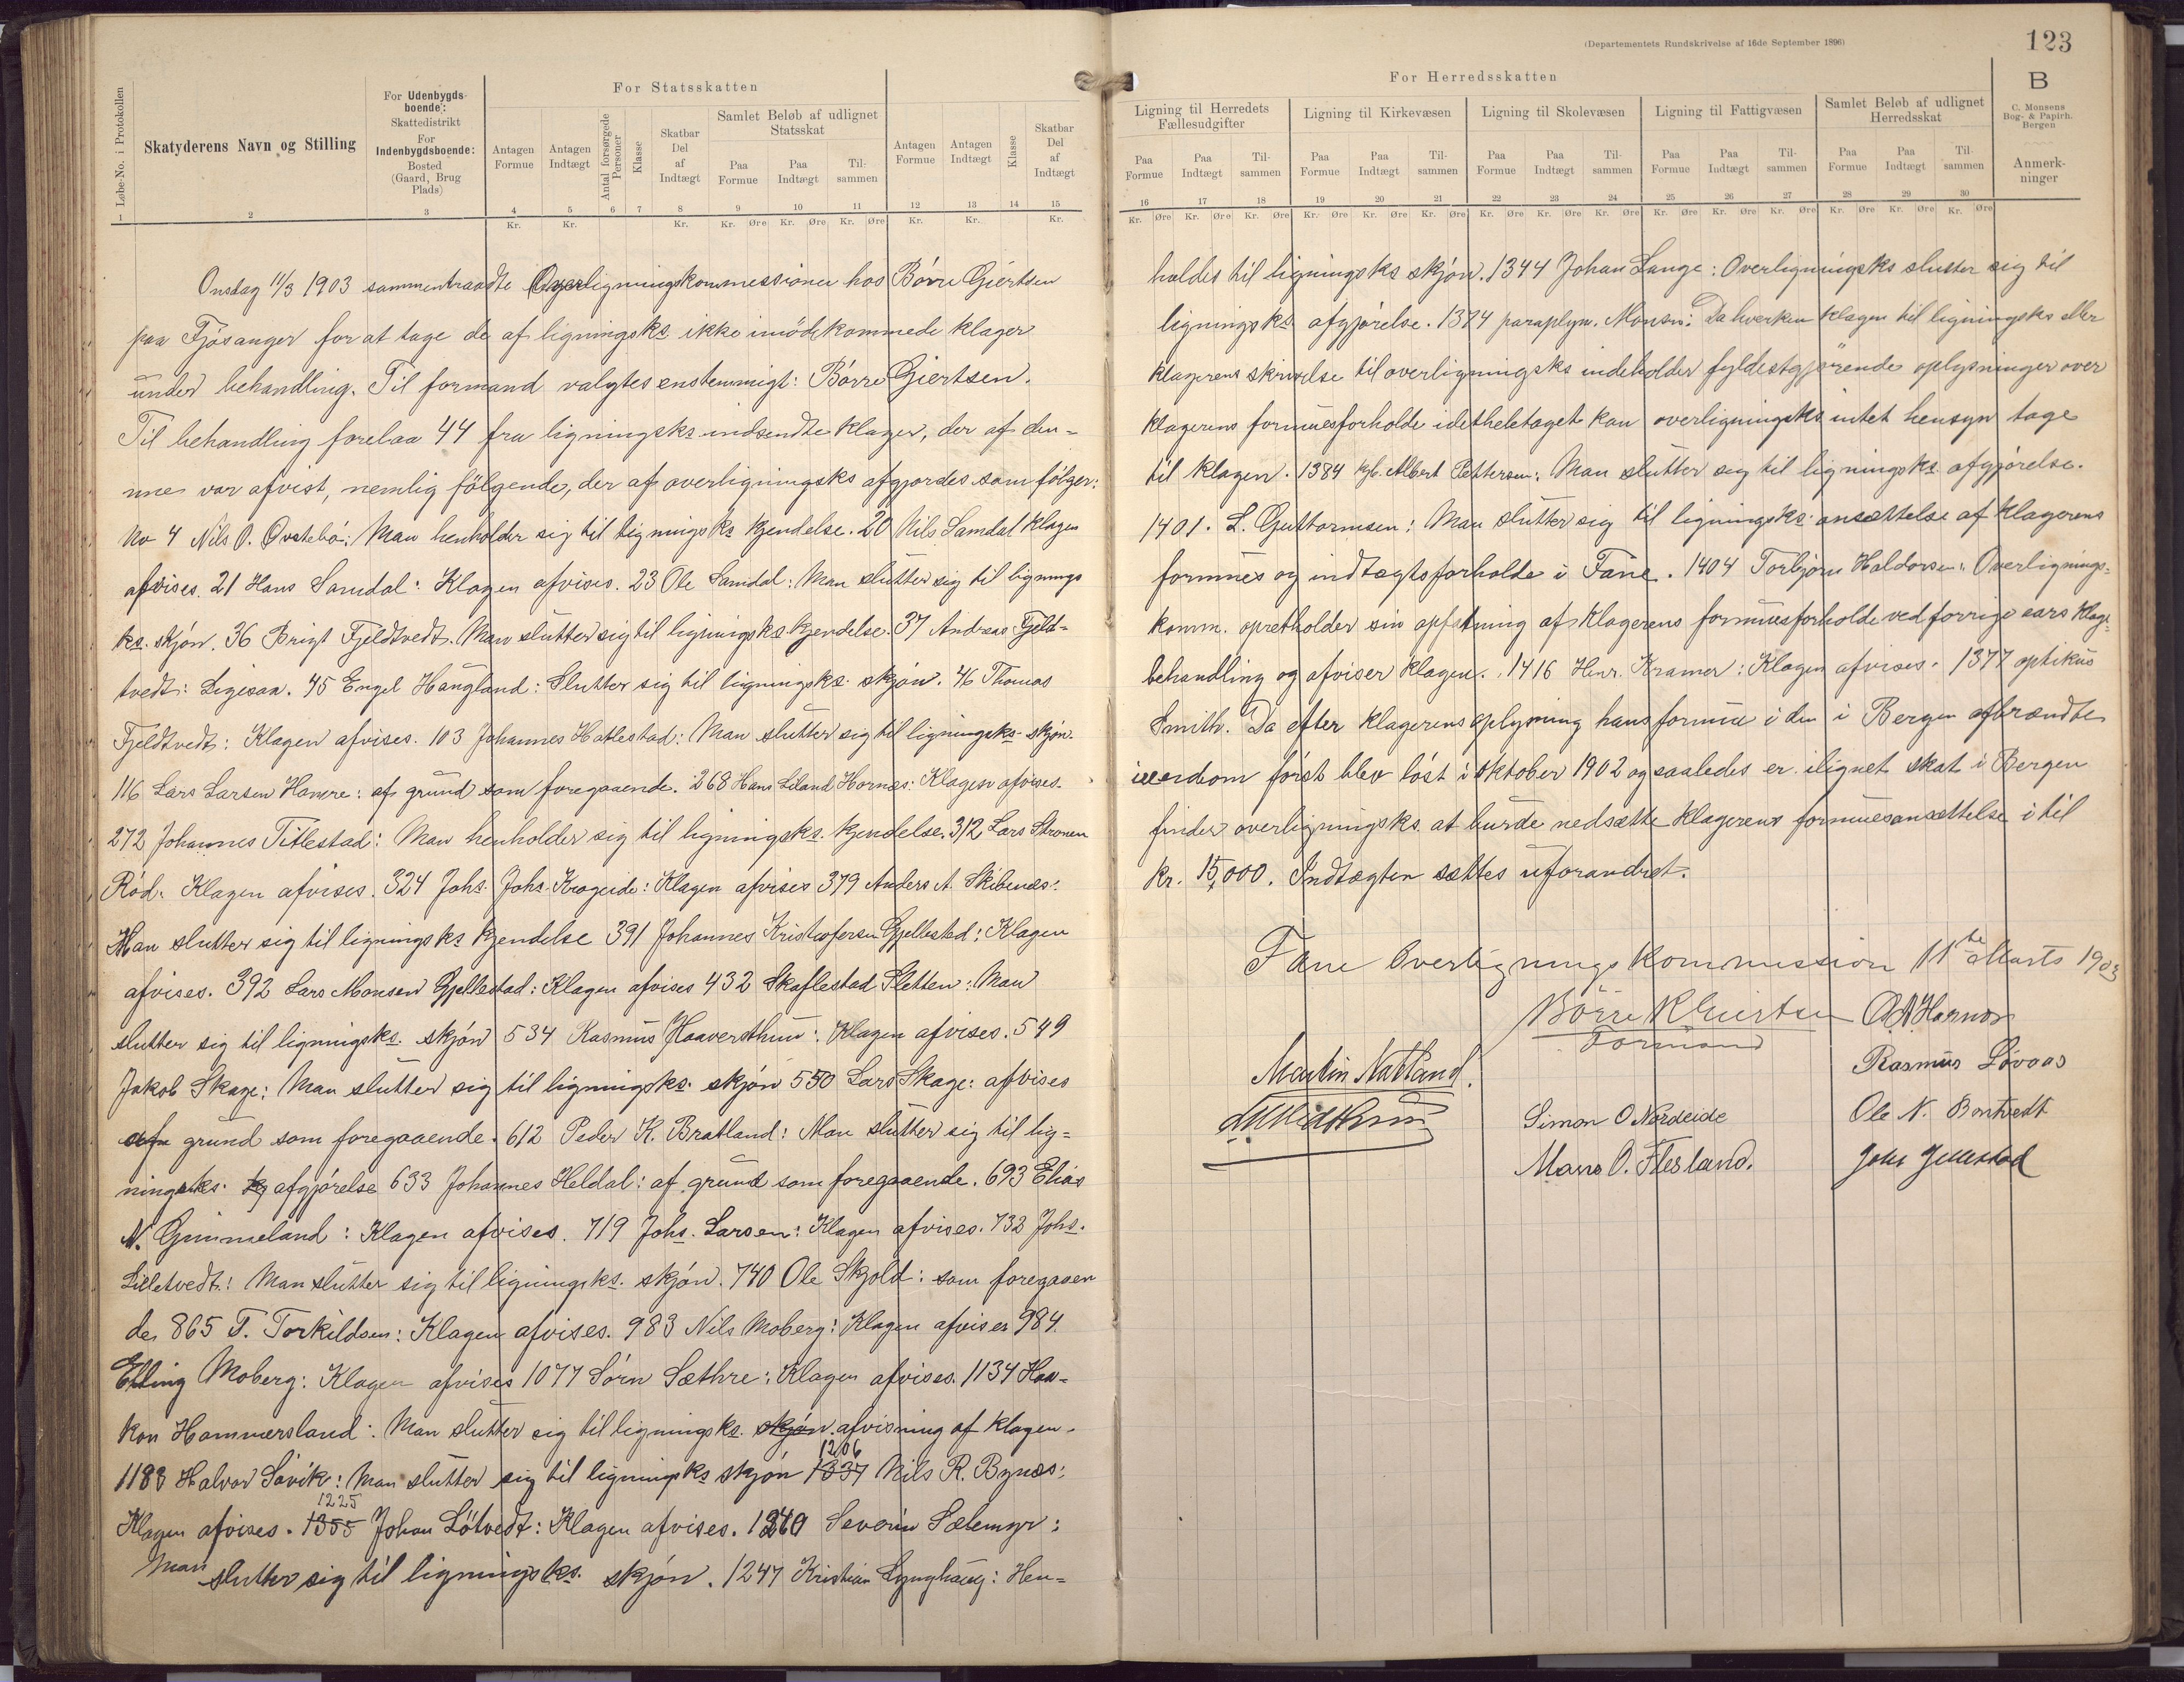 (Departementets Rundskrivelse af 16de September 1896)
123
For Statsskatten
For Herredsskatten
B
C. Monsens
Bog- & Papirh.
Bergen
Løbe-No. i Protokollen
Skatyderens Navn og Stilling
For Udenbygds-
boende:
Skattedistrikt
For
Indenbygdsboende:
Bosted
(Gaard, Brug
Plads)
Antagen Formue
Antagen Indtægt
Antal forsørgede Personer
Klasse
Skatbar Del af Indtægt
Samlet Beløb af udlignet Statsskat
Paa Formue
Paa Indtægt
Til-sammen
Antagen Formue
Antagen Indtægt
Klasse
Skatbar Del af Indtægt
1 2 3 4 5 6 7 8 9 10 11 12 13 14 15
Kr. Kr. Kr. Kr. Øre Kr. Øre Kr. Øre Kr. Kr. Kr.
Onsdag 11/3 1903 sammentraadte Overligningskommessionen hos Börre Giertsen
paa Fjösanger for at tage de af ligningsks. ikke imödekommede klager
under behandling. Til formand valgtes enstemmigt: Börre Giertsen.
Til behandling forelaa 44 fra ligningsks indsendte klager, der af den-
ne var afvist, nemlig fölgende, der af overligningsks afgjordes som fölger:
No 4 Nils O. Øvstebö: Man henholder sig til ligningsks kjendelse. 20 Nils Samdal klagen
afvises. 21 Hans Samdal: Klagen afvises. 23 Ole Samdal: Man slutter sig til lignings
ks. skjön. 36 Brigt Fjeldtvedt. Man slutter sig til ligningsks. kjendelse. 37 Andreas Fjeld-
tvedt: Ligesaa. 45 Engel Haugland: Slutter sig til ligningsks. skjön. 46 Thomas
Fjeldtvedt: Klagen afvises. 103 Johannes Hatlestad: Man slutter sig til ligningsks. skjön.
116 Lars Larsen Hamre: af grund som foregaaende. 268 Hans Liland Hornæs: Klagen afvises.
272 Johannes Titlestad: Man henholder sig til ligningsks. kjendelse. 312 Lars Stronen
Röd. Klagen afvises. 324 Johs. Johs. Krogeide: Klagen afvises 379 Anders A. Skibenæs:
Man slutter sig til ligningsks kjendelse 391 Johannes Kristofersen Gjellestad: Klagen
afvises. 392 Lars Monsen Gjellestad: Klagen afvises 432 Skaflestad Sletten: Man
slutter sig til ligningsks. skjön 534 Rasmus Haaversthun: Klagen afvises. 549
Jakob Skage: Man slutter sig til ligningsks. skjön 550 Lars Skage: afvises
af grund som foregaaende. 612 Peder K. Bratland: Man slutter sig til lig-
ningsks. afgjörelse 633 Johannes Heldal: af grund som foregaaende. 693 Elias
N. Grimmeland: Klagen afvises. 719 Johs. Larsen: Klagen afvises. 732 Johs.
Lilletvedt: Man slutter sig til ligningsks. skjön. 740 Ole Skjold: som foregaaen
de. 865 T. Torkildsen: Klagen afvises. 983 Nils Moberg: Klagen afvises 984.
Elling Moberg: Klagen afvises 1077 Sörn Sæthre: Klagen afvises. 1134 Haa-
kon Hammersland: Man slutter sig til ligningsks. skjön afvisning af klagen.
1206
1183 Halvor Sövik: Man slutter sig til ligningsks skjön 1337 Nils R. Bynæs:
1225
Klagen afvises. 1355 Johan Lötvedt: Klagen afvises. 1240 Severin Sælemyr:
Man slutter sig til ligningsks. skjön. 1247 Kristian Lynghaug: Hen-
Ligning til Herredets Fællesudgifter
Ligning til Kirkevæsen
Ligning til Skolevæsen
Ligning til Fattigvæsen
Samlet Beløb af udlignet Herredsskat
Paa Formue Paa Indtægt Til-sammen
Paa Formue Paa Indtægt Til-sammen
Paa Formue Paa Indtægt Til-sammen
Paa Formue Paa Indtægt Til-sammen
Paa Formue Paa Indtægt Til-sammen
Anmerk-
ninger
16 17 18 19 20 21 22 23 24 25 26 27 28 29 30
Kr. Øre Kr. Øre Kr. Øre Kr. Øre Kr. Øre Kr. Øre Kr. Øre Kr. Øre Kr. Øre Kr. Øre Kr. Øre Kr. Øre Kr. Øre Kr. Øre Kr. Øre
holdes til ligningsks skjön. 1344 Johan Lange: Overligningsks slutter sig til
ligningsks afgjörelse. 1374 paraplym. Monsen: Da hverken klagen til ligningsks eller
klagerens skrivelse til overligningsks indeholder fyldestgjörende oplysninger over
klagerens formuesforholde idetheletaget kan overligningsks intet hensyn tage
til klagen. 1384 Albert Pettersen: Man slutter sig til ligningsks afgjörelse.
1401. L. Guttormsen: Man slutter sig til ligningsks. ansættelse af klagerens
formues og indtægtsforholde i Fane. 1404 Torbjörn Haldorsen: Overlignings-
komm. opretholder sin opfatning af klagerens formuesforholde ved forrige aars klage-
behandling og afviser klagen. 1416 Henr. Kramer: Klagen afvises. 1377 optikus
Smith. Da efter klagerens oplysning hans formue i den i Bergen afbrændte
eiendom först blev löst i oktober 1902 og saaledes er ilignet skat i Bergen
finder overligningsks. at burde nedsætte klagerens formuesansættelse i til
Kr. 15,000. Indtægten sættes uforandret.
Fane Overligningskommission 11te Marts 1903
Börre Giertsen
Formand
Martin Natland.
Rasmus Lövaas
Simon O Nordeide
Ole N. Bontvedt
Mons O. Flesland.
Johs Gjellestad